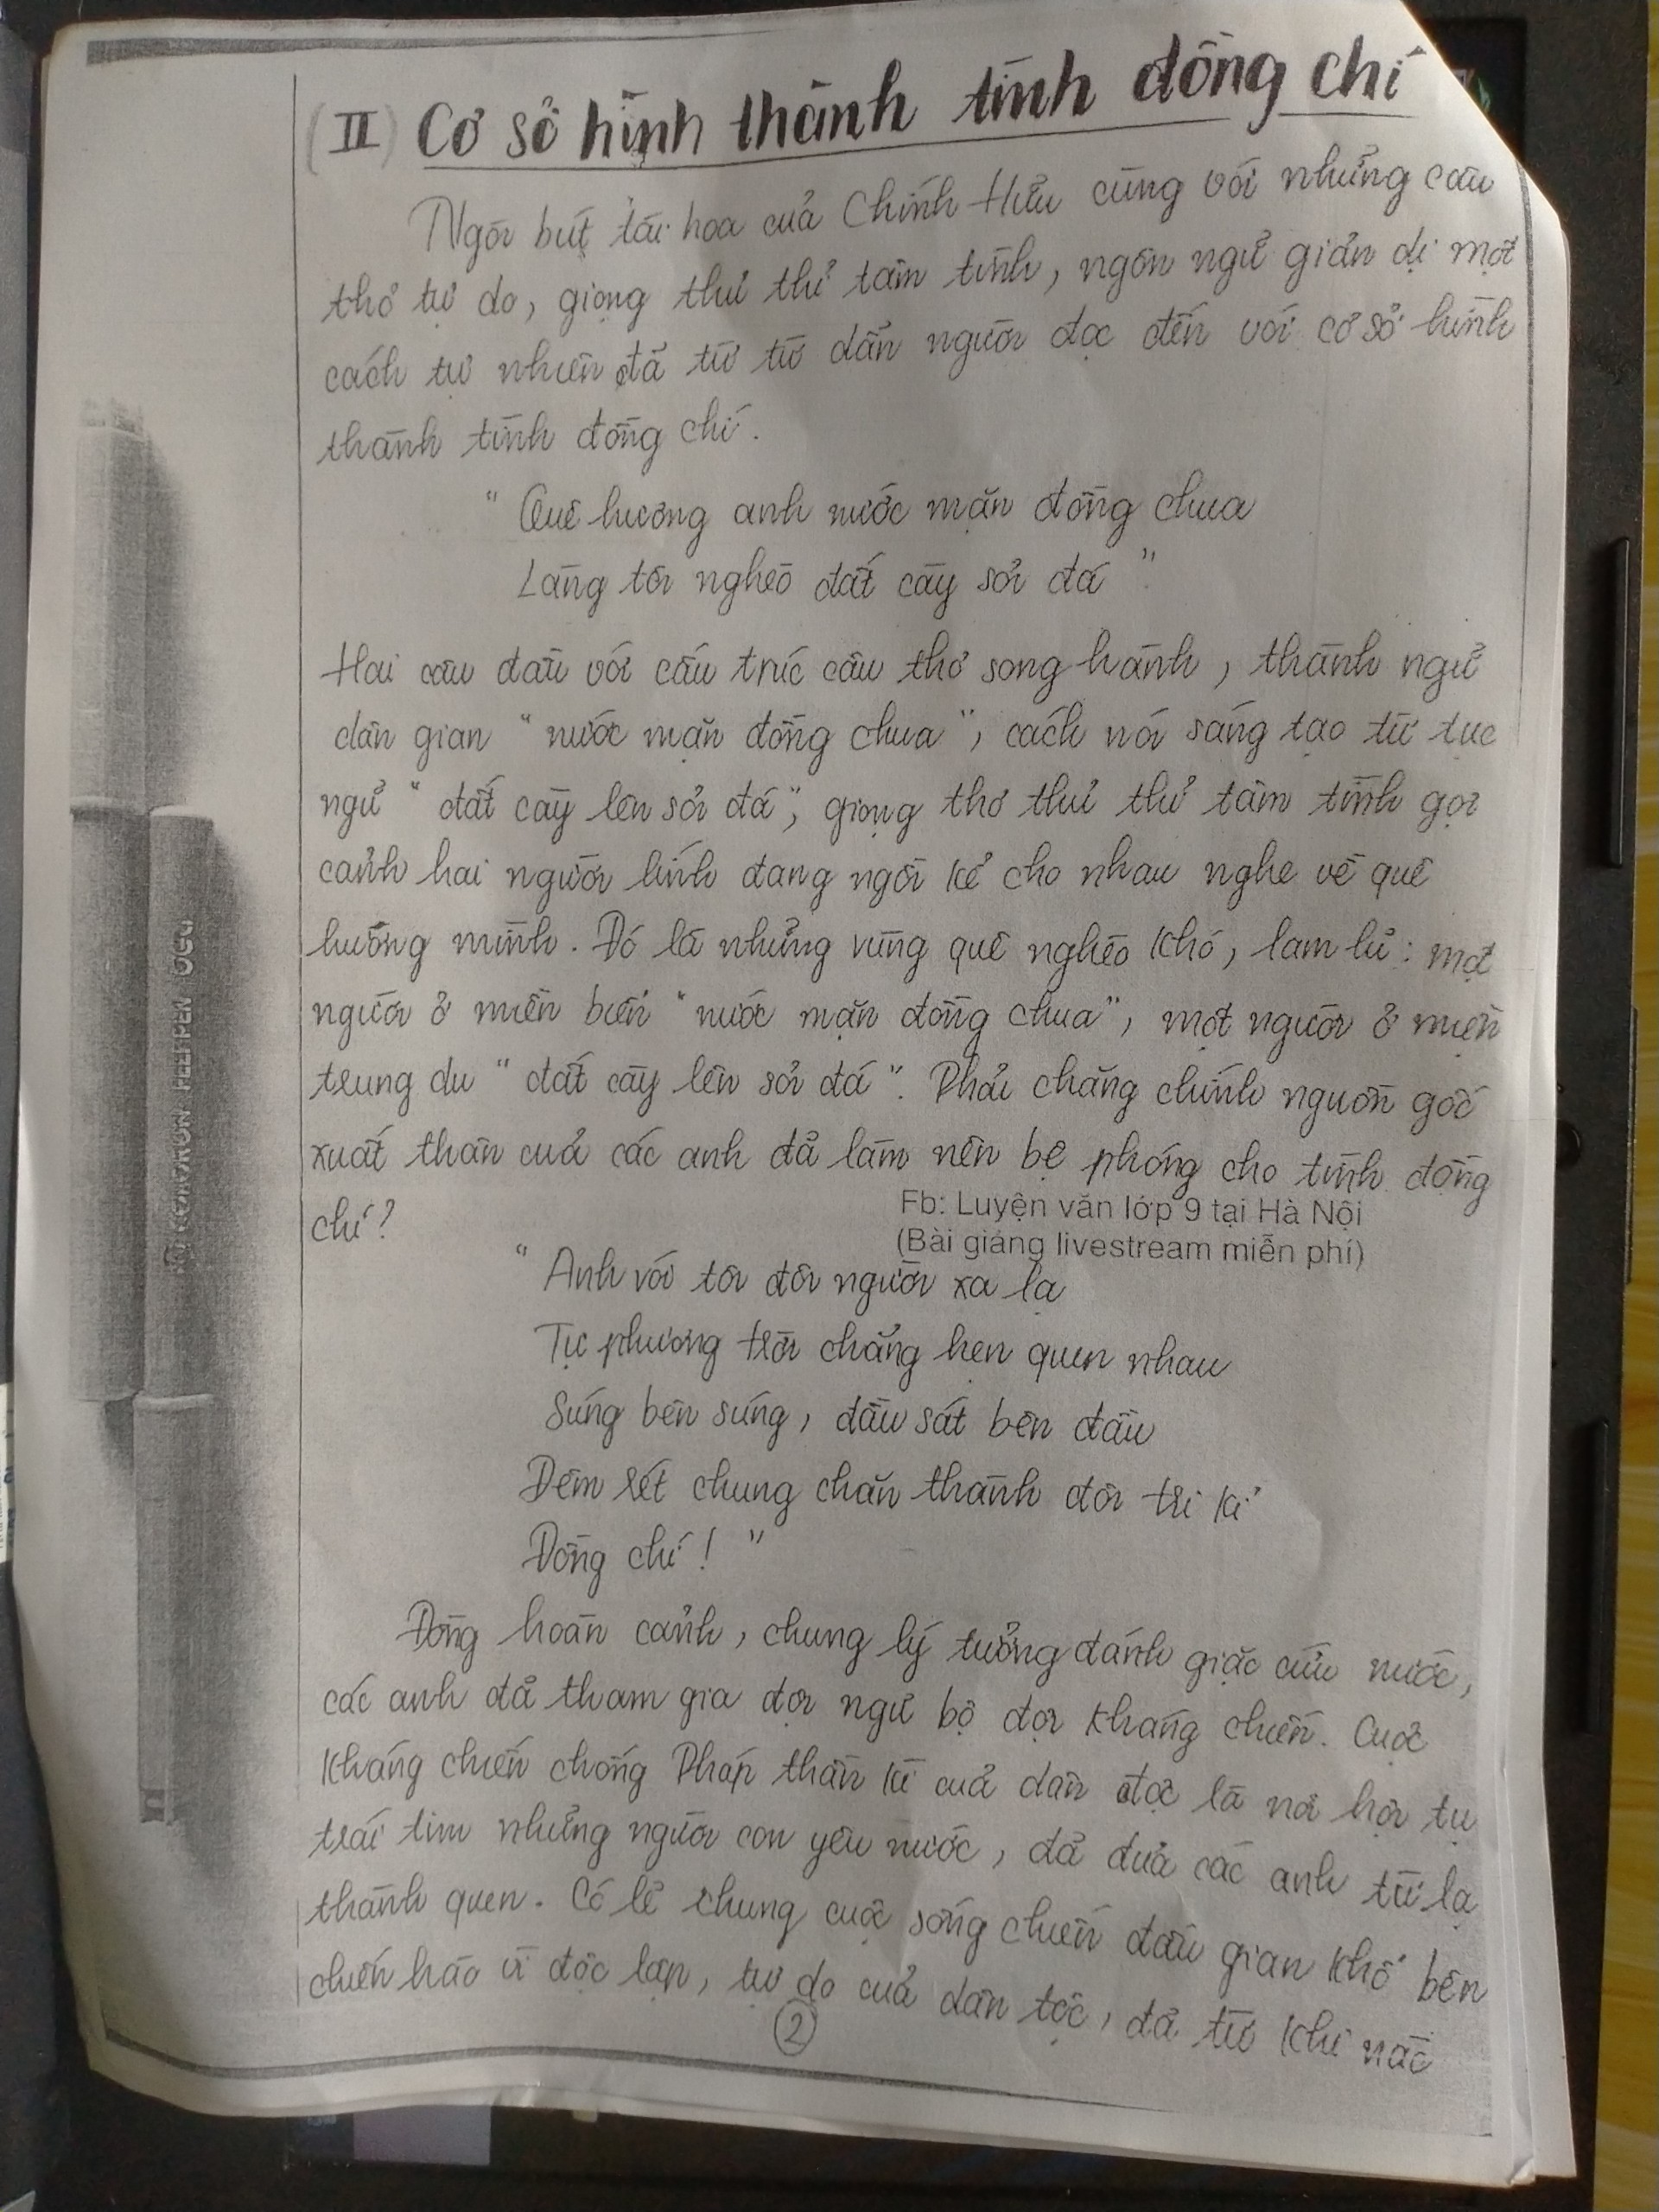 (II) Cơ sở hình thành tình đồng chí
Ngòi bút tài hoa của Chính Hữu cùng với những câu
thơ tự do, giọng thủ thỉ tâm tình, ngôn ngữ giản dị một
cách tự nhiên đã từ từ dẫn người đọc đến với cơ sở hình
thành tình đồng chí.
" Quê hương anh nước mặn đồng chua
Làng tôi nghèo đất cày sỏi đá "
Hai câu đầu với cấu trúc câu thơ song hành, thành ngữ
dân gian " nước mặn đồng chua ", cách nói sáng tạo từ tục
ngữ " đất cày lên sỏi đá ", giọng thơ thủ thỉ tâm tình gợi
cảnh hai người lính đang ngồi kể cho nhau nghe về quê
hương mình. Đó là những vùng quê nghèo khó, lam lũ : một
người ở miền biển " nước mặn đồng chua ", một người ở miền
trung du " đất cày lên sỏi đá ". Phải chăng chính nguồn gốc
xuất thân của các anh đã làm nên bệ phóng cho tình đồng
chí ?
Fb: Luyện văn lớp 9 tại Hà Nội
(Bài giảng livestream miễn phí)
" Anh với tôi đôi người xa lạ
Tự phương trời chẳng hẹn quen nhau
Súng bên súng, đầu sát bên đầu
Đêm rét chung chăn thành đôi tri kỉ
Đồng chí ! "
Đồng hoàn cảnh, chung lý tưởng đánh giặc cứu nước,
các anh đã tham gia đội ngũ bộ đội kháng chiến. Cuộc
kháng chiến chống Pháp thần kì của dân tộc là nơi hội tụ
trái tim những người con yêu nước, đã đưa các anh từ lạ
thành quen. Có lẽ chung cuộc sống chiến đấu gian khổ bên
chiến hào vì độc lập, tự do của dân tộc, đã từ khi nào
2
KEDVORON FEEPPER OSO